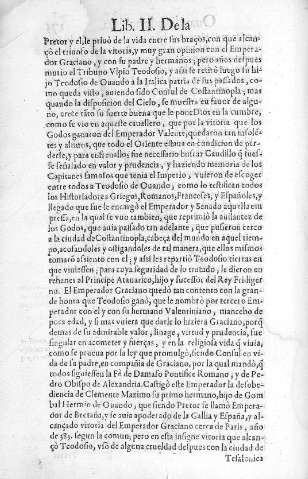 Lib. II. De la
Pretor y el, le priuò de la vida entre sus braços, con que alcan-
çò el triunfo de la vitoria, y muy gran opinion con el Empera-
dor Graciano, y con su padre y hermanos; pero años despues
murio el Tribuno Vlpio Teodosio, y assi se retirò luego su hi-
jo Teodosio de Ouando a la Italica patria de sus passados, co-
mo queda visto, auiendo sido Consul de Costantinopla; mas
quando la disposicion del Cielo, se muestra en fauor de algu-
no, tiene tāto su fuerte buena que le pone Dios en la cumbre,
como se vio en aqueste cauallero, que por la vitoria que los
Godos ganaron del Emperador Valente, quedaron tan insolē-
tes y altiuos, que todo el Oriente estaua en condicion de per-
derse, y para estoruallos, fue necessario buscar Caudillo q̃ fues-
se señalado en valor y prudencia, y haziendo memoria de los
Capitanes famosos que tenia el Imperio, vuieron de escoger
entre todos a Teodosio de Ouando, como lo testifican todos
los Historiadores Griegos, Romanos, Franceses, y Españoles, y
llegado que fue le encargò el Emperador y Senado aquella em
pressa, en la qual se vuo tambien, que reprimio la auilantez de
los Godos, que auia passado tan adelante, que pusieron cerco
a la ciudad de Costantinopla, cabeça del mundo en aquel tiem-
po, acosandolos y obligandolos de tal manera, que ellos mismos
tomarō assiento con el; y assi les repartiò Teodosio tierras en
que viuiessen; para cuya seguridad de lo tratado, le dieron en
rehenes al Principe Atanarico, hijo y sucessor del Rey Fridiger
no. El Emperador Graciano quedò tan contento con la gran-
de honra que Teodosio ganò, que le nombrò por tercero Em-
perador con el y con su hermano Valentiniano, mancebo de
poca edad, y si mas vuiera que darle lo hiziera Graciano, porq̃
demas de su admirable valor, linage, virtud y prudencia, fue
singular en acometer y fuerças, y en la religiosa vida q̃ viuia,
como se prueua por la ley que promulgò, siendo Consul en vi-
da de su padre, en compañia de Graciano, por la qual mandò, q̃
todos siguiessen la Fè de Damaso Pontifice Romano, y de Pe-
dro Obispo de Alexandria. Castigò este Emperador la desobe-
diencia de Clemente Maximo su primo hermano, hijo de Gom
bal Hermin de Ouando, que siendo Pretor se llamò Empera-
dor de Bretaña, y se auia apoderado de la Gallia y España, y al-
cançado vitoria del Emperador Graciano cerca de Paris, año
de 383. segun la comun; pero en esta insigne vitoria que alcan-
çò Teodosio, vsò de alguna crueldad despues con la ciudad de
Tesalonica